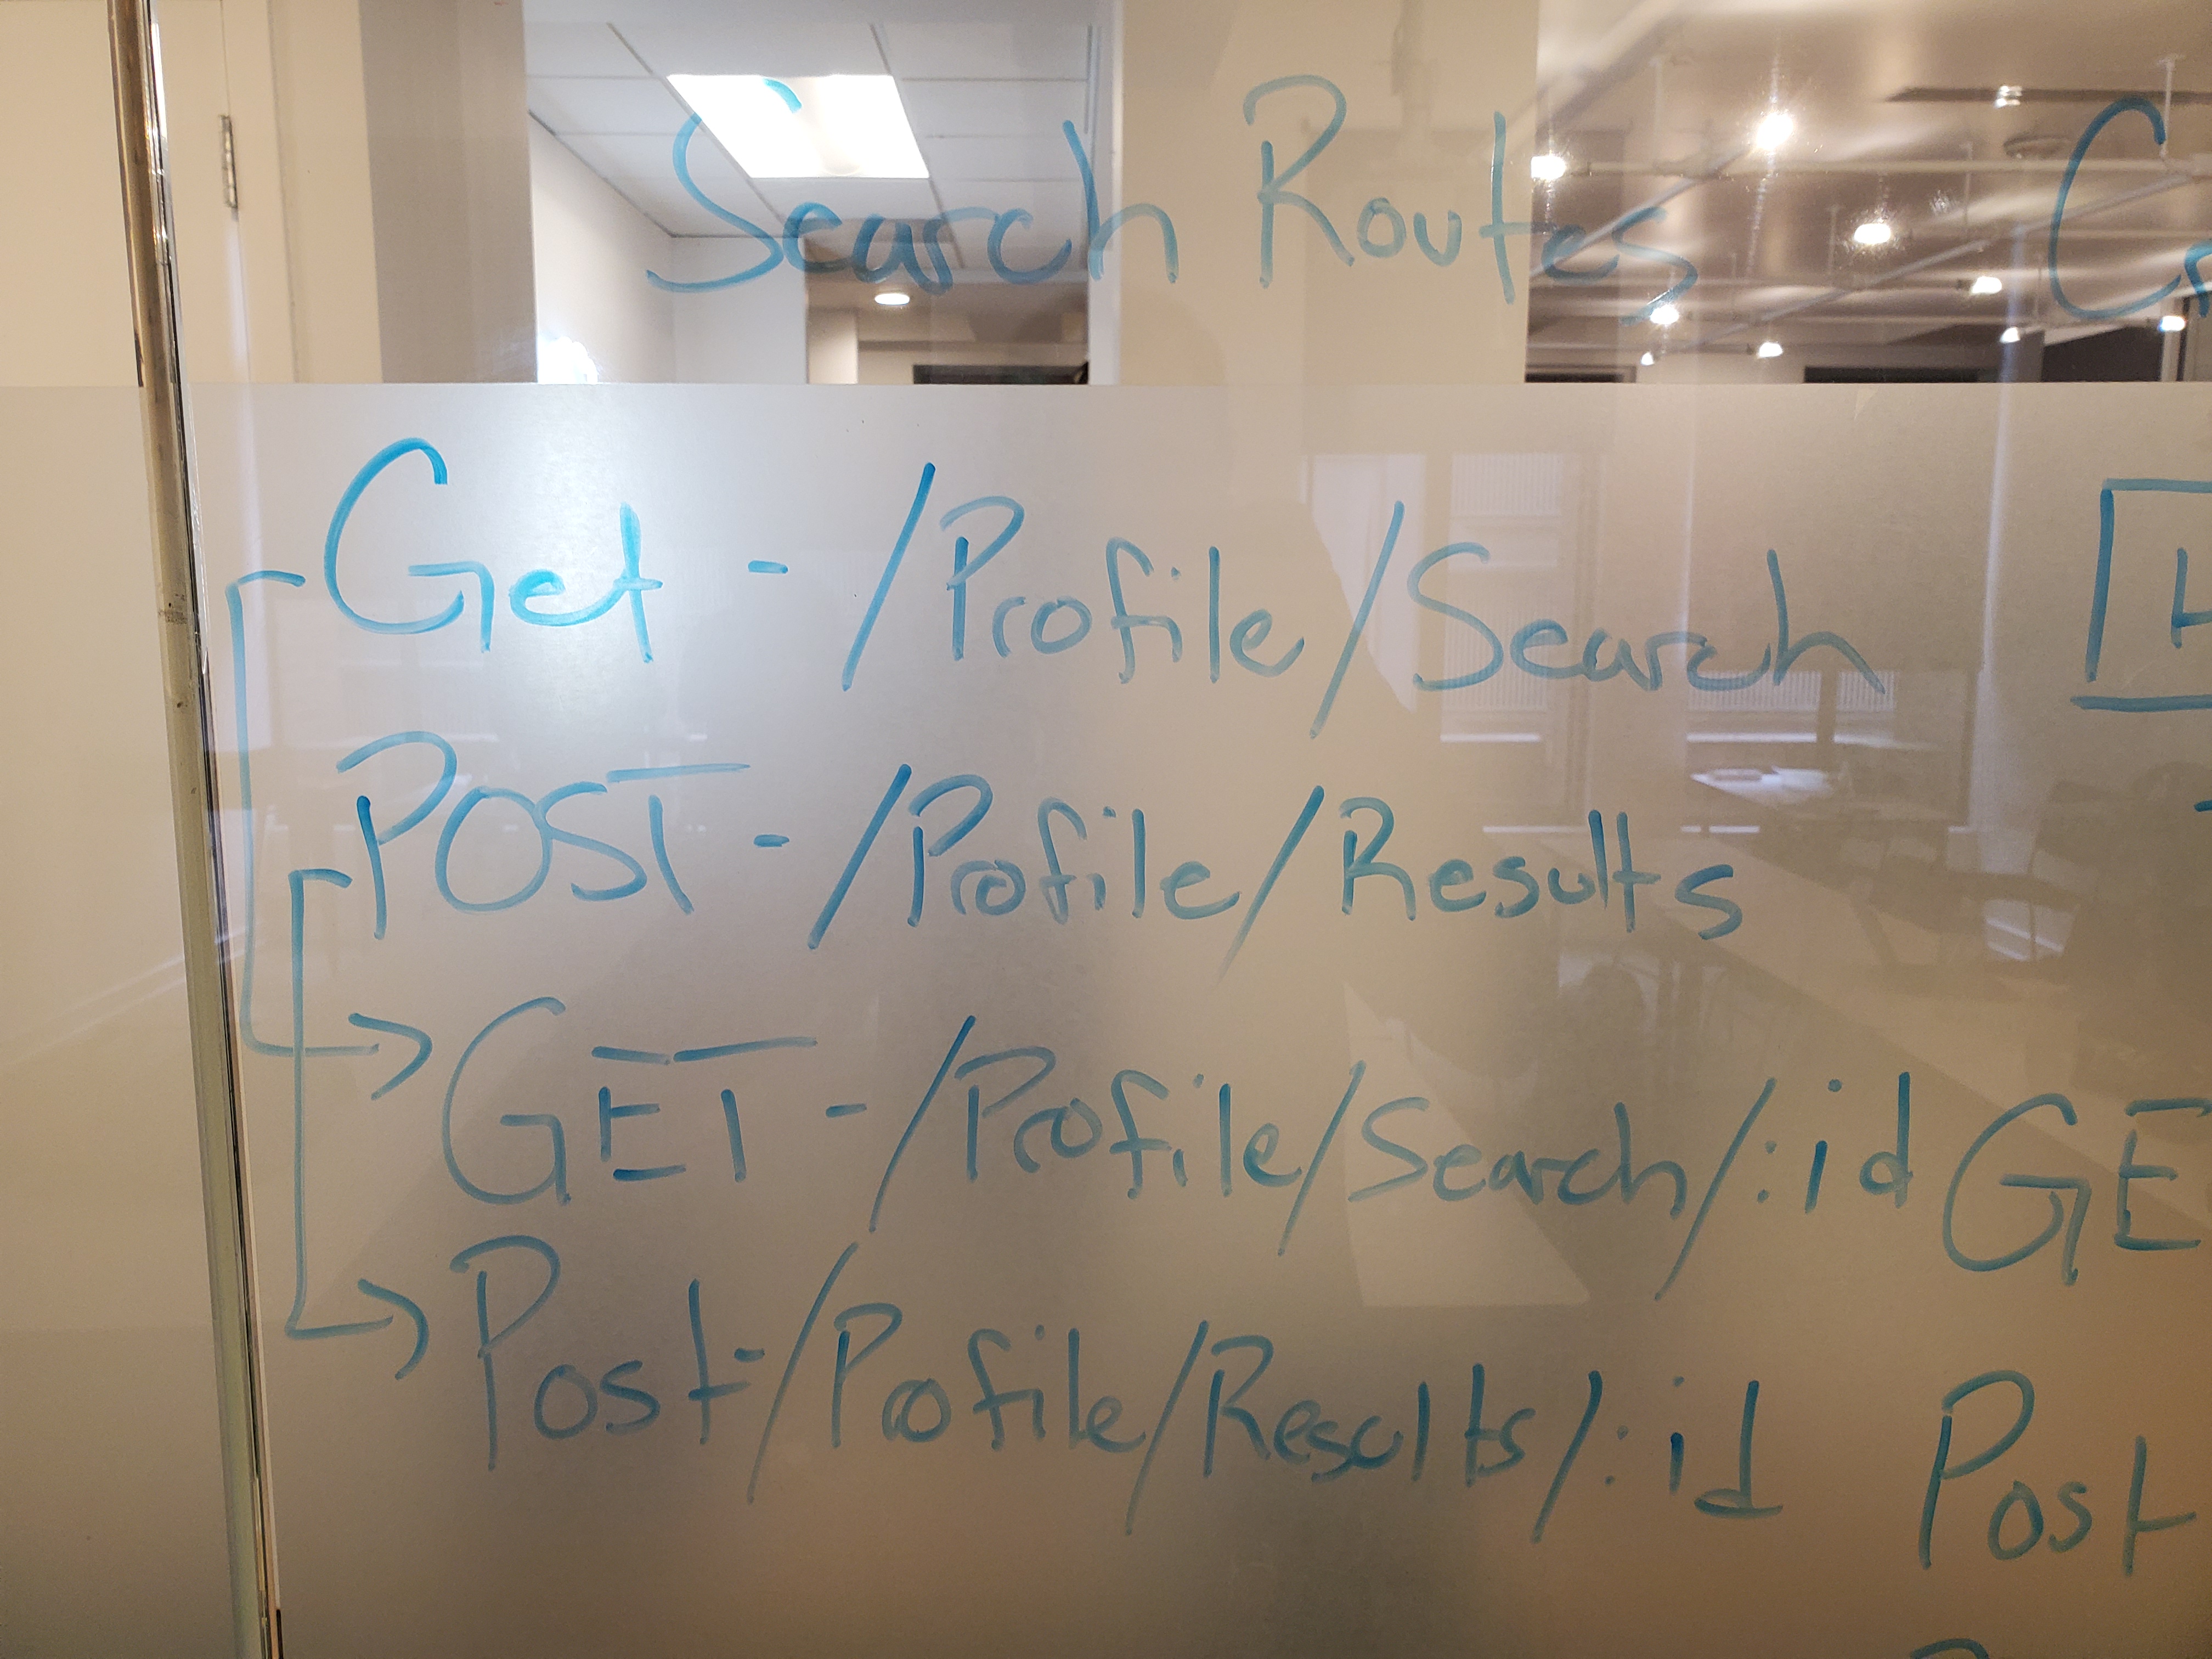 Search Routes
Get - /Profile/Search
POST - /Profile/Results
GET - /Profile/Search/:id GE
Post - /Profile/Results/:id Post